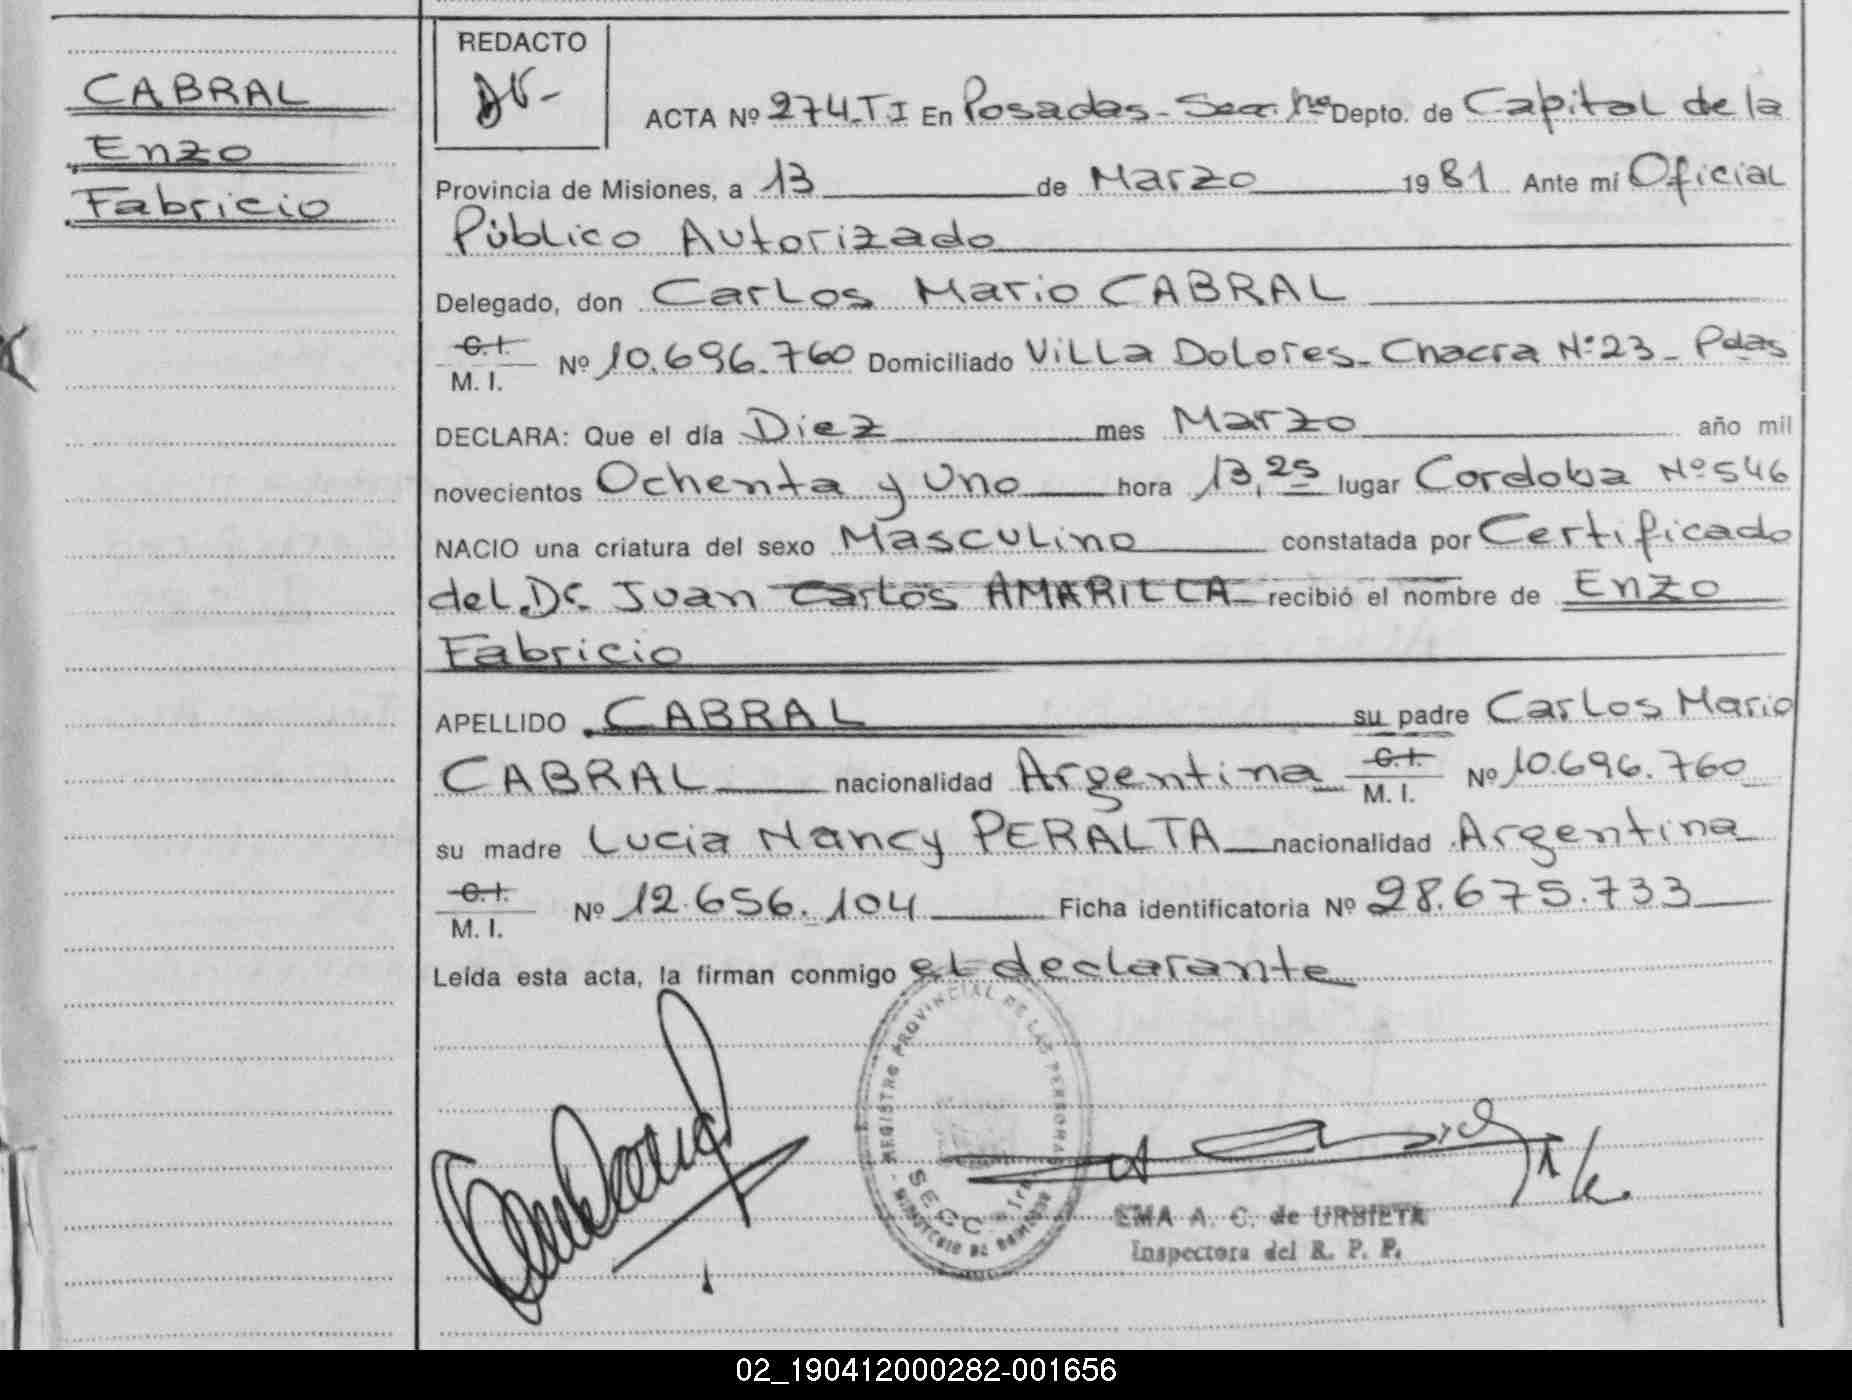 CABRAL
Enzo
Fabricio
REDACTO
ACTA Nº 274-TI En Posadas - Secc. 1ra Depto. de Capital de la
Provincia de Misiones, a 13 de Marzo 1981 Ante mí Oficial
Público Autorizado
Delegado, don Carlos Mario CABRAL
C.I.
M. I. Nº 10.696.760 Domiciliado Villa Dolores - Chacra Nº 23 - Pdas
DECLARA: Que el día Diez mes Marzo año mil
novecientos Ochenta y Uno hora 13,25 lugar Cordoba Nº 546
NACIO una criatura del sexo Masculino constatada por Certificado
del Dr. Juan Carlos AMARILLA recibió el nombre de Enzo
Fabricio
APELLIDO CABRAL su padre Carlos Mario
CABRAL nacionalidad Argentina C.I. M. I. Nº 10.696.760
su madre Lucia Nancy PERALTA nacionalidad Argentina
C.I.
M. I. Nº 12.656.104 Ficha identificatoria Nº 28.675.733
Leída esta acta, la firman conmigo el declarante
REGISTRO PROVINCIAL DE LAS PERSONAS
SECC. 1ra
EMA A. C. de URBIETA
Inspectora del R. P. P.
02_190412000282-001656